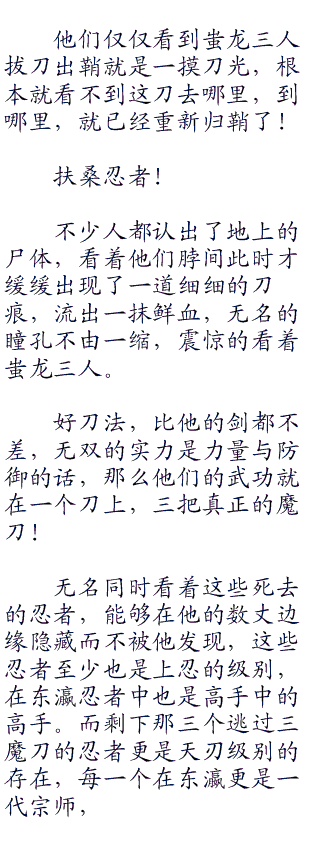 他们仅仅看到蚩龙三人
拔刀出鞘就是一摸刀光，根
本就看不到这刀去哪里，到
哪里，就已经重新归鞘了！
扶桑忍者！
不少人都认出了地上的
尸体，看着他们脖间此时才
缓缓出现了一道细细的刀
痕，流出一抹鲜血，无名的
瞳孔不由一缩，震惊的看着
蚩龙三人。
好刀法，比他的剑都不
差，无双的实力是力量与防
御的话，那么他们的武功就
在一个刀上，三把真正的魔
刀！
无名同时看着这些死去
的忍者，能够在他的数丈边
缘隐藏而不被他发现，这些
忍者至少也是上忍的级别，
在东瀛忍者中也是高手中的
高手。而剩下那三个逃过三
魔刀的忍者更是天刃级别的
存在，每一个在东瀛更是一
代宗师，